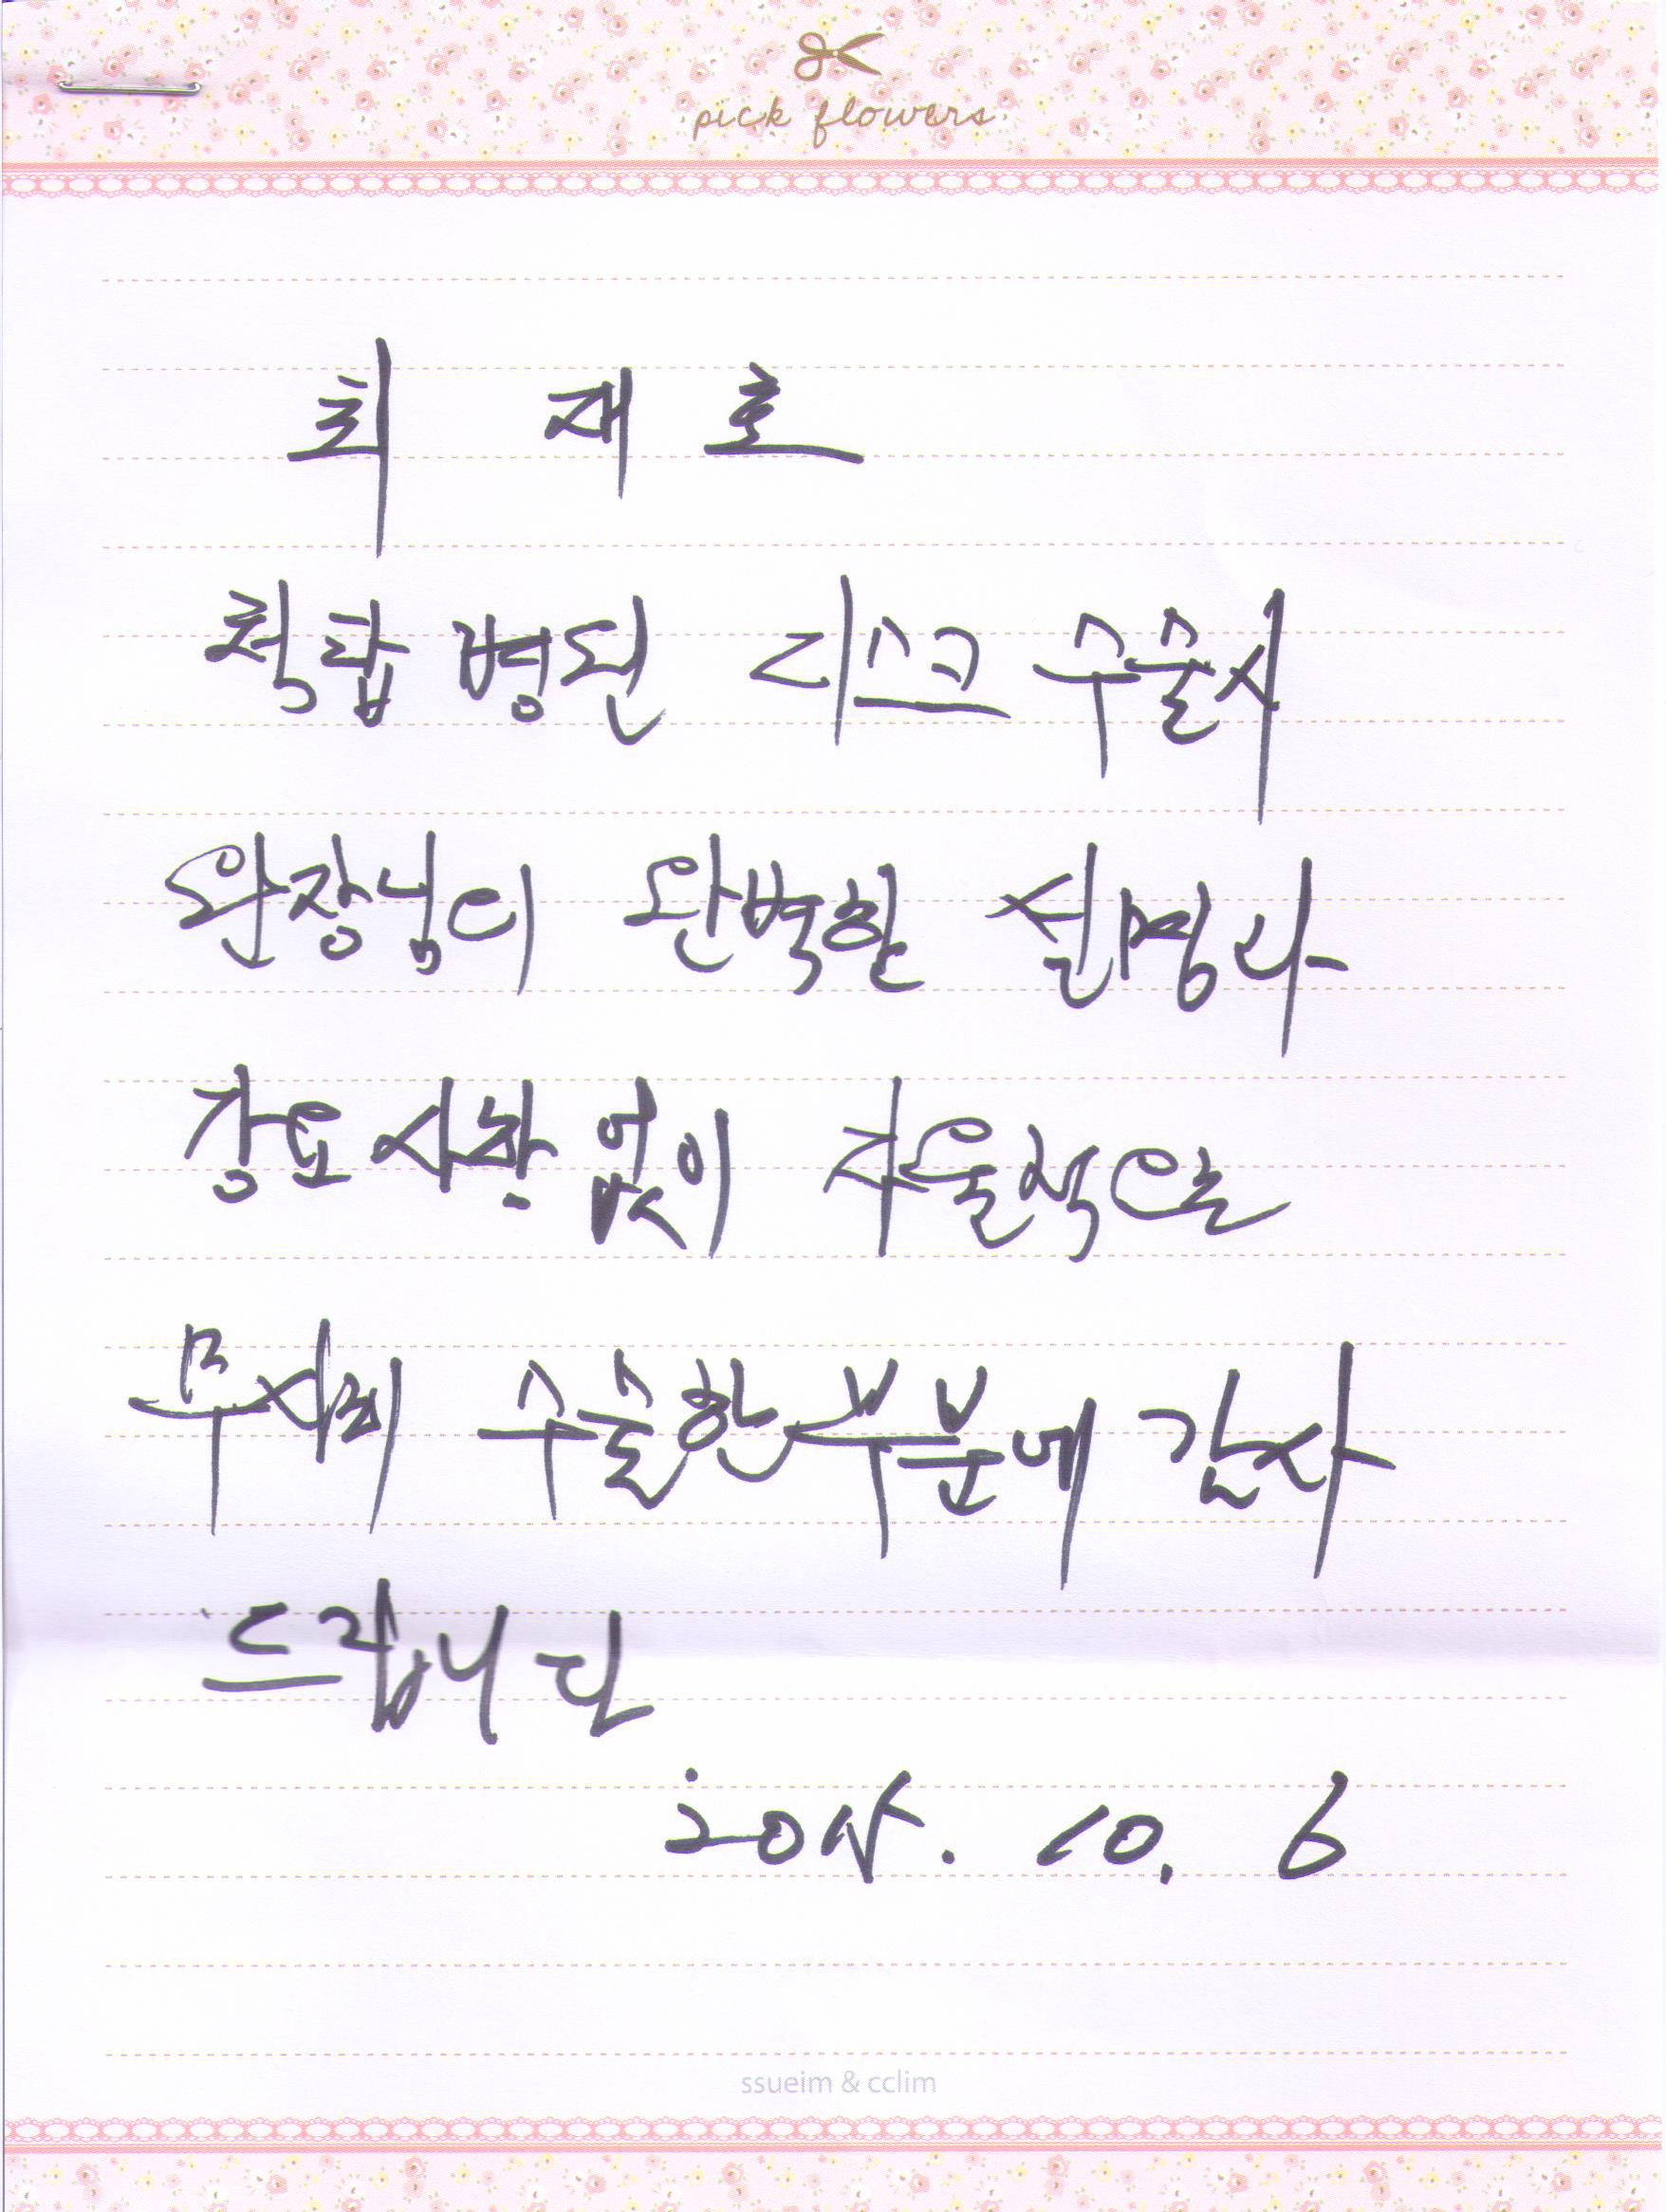 pick flowers
최 재 호
척합 병된 디스크 수술시
원장님의 완벽한 설명과
강요사항 없이 자율적으로
무사히 수술한 부분에 감사
드립니다
2015. 10. 6
ssueim & cclim